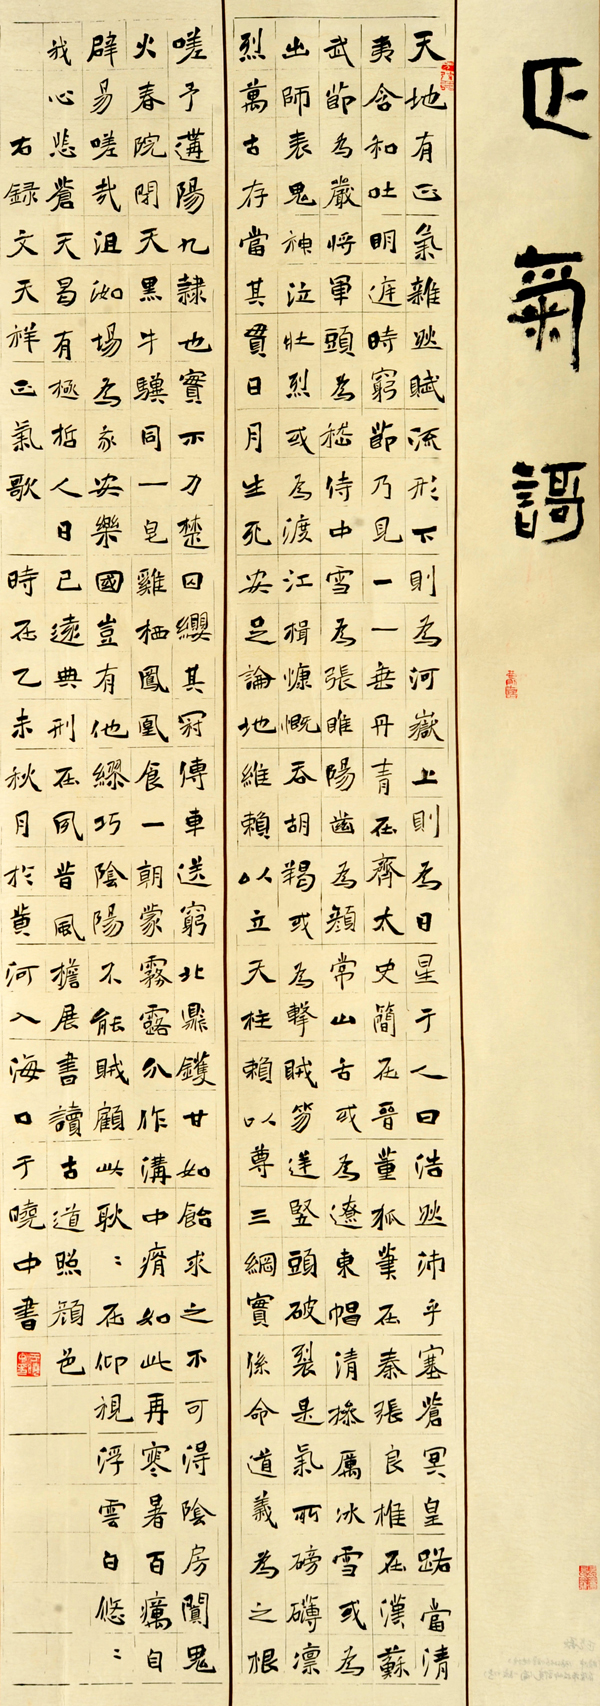 正氣謌
天地有正氣雜然賦流形下則為河嶽上則為日星于人曰浩然沛乎塞蒼冥皇路當清
夷含和吐明庭時窮節乃見一一垂丹青在齊太史簡在晉董狐筆在秦張良椎在漢蘇
武節為嚴將軍頭為嵇侍中雪為張睢陽齒為顏常山舌或為遼東帽清操厲冰雪或為
出師表鬼神泣壯烈或為渡江楫慷慨吞胡羯或為擊賊笏逆竪頭破裂是氣所磅礴凛
烈萬古存當其貫日月生死安足論地維賴以立天柱賴以尊三綱實係命道義為之根
嗟予遘陽九隸也實不力楚囚纓其冠傳車送窮北鼎鑊甘如飴求之不可得陰房闐鬼
火春院閉天黑牛驥同一皂雞栖鳳凰食一朝蒙霧露分作溝中瘠如此再寒暑百癘自
辟易嗟哉沮洳場為我安樂國豈有他繆巧陰陽不能賊顧此耿〻在仰視浮雲白悠〻
我心悲蒼天曷有極哲人日已遠典刑在夙昔風檐展書讀古道照顏色
右錄文天祥正氣歌 時在乙未秋月於黄河入海口于曉中書